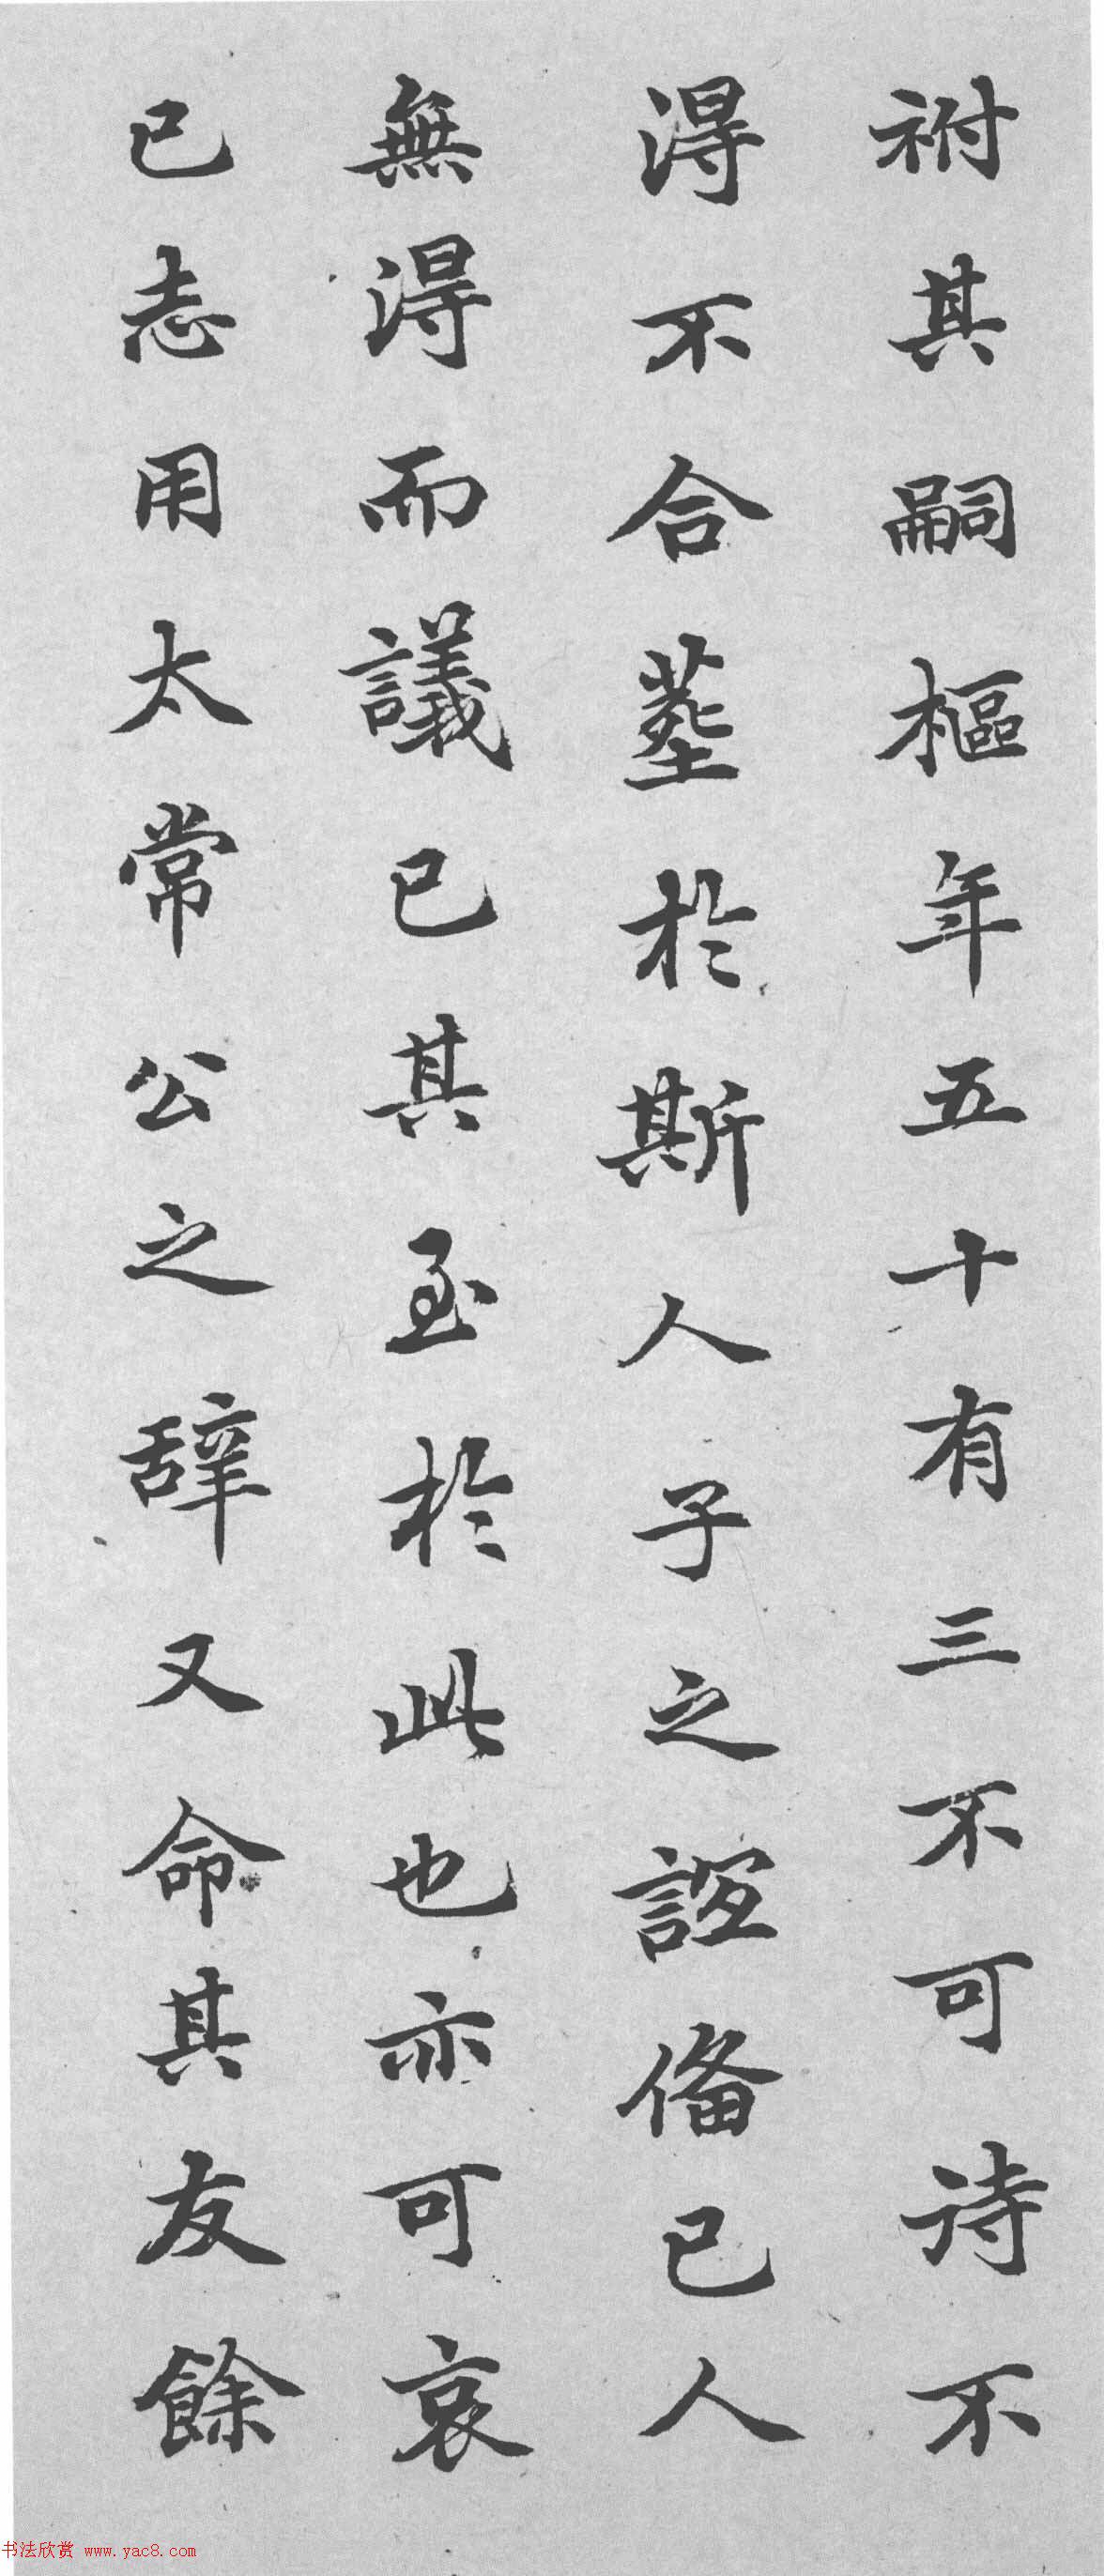 祔其嗣樞年五十有三不可詩不
淂不合塟於斯人子之誼俻已人
無淂而議已其至於此也亦可哀
已志用太常公之辞又命其友餘
书法欣赏 www.yac8.com